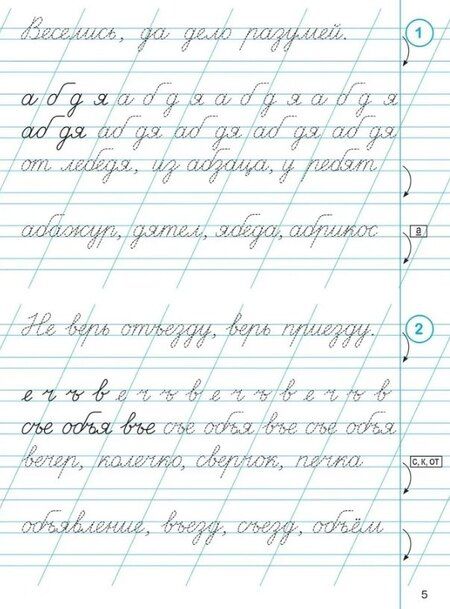 Веселись, да дело разумей. 1
а б д я а б д я а б д я а б д я
аб дя аб дя аб дя аб дя аб дя
от лебедя, из абзаца, у ребят
абажур, дятел, ябеда, абрикос а
Не верь отъезду, верь приезду. 2
е ч ъ в е ч ъ в е ч ъ в е ч ъ в
съе объя въе съе объя въе съе объя
вечер, колечко, сверчок, печка с, к, от
объявление, въезд, съезд, объём
5